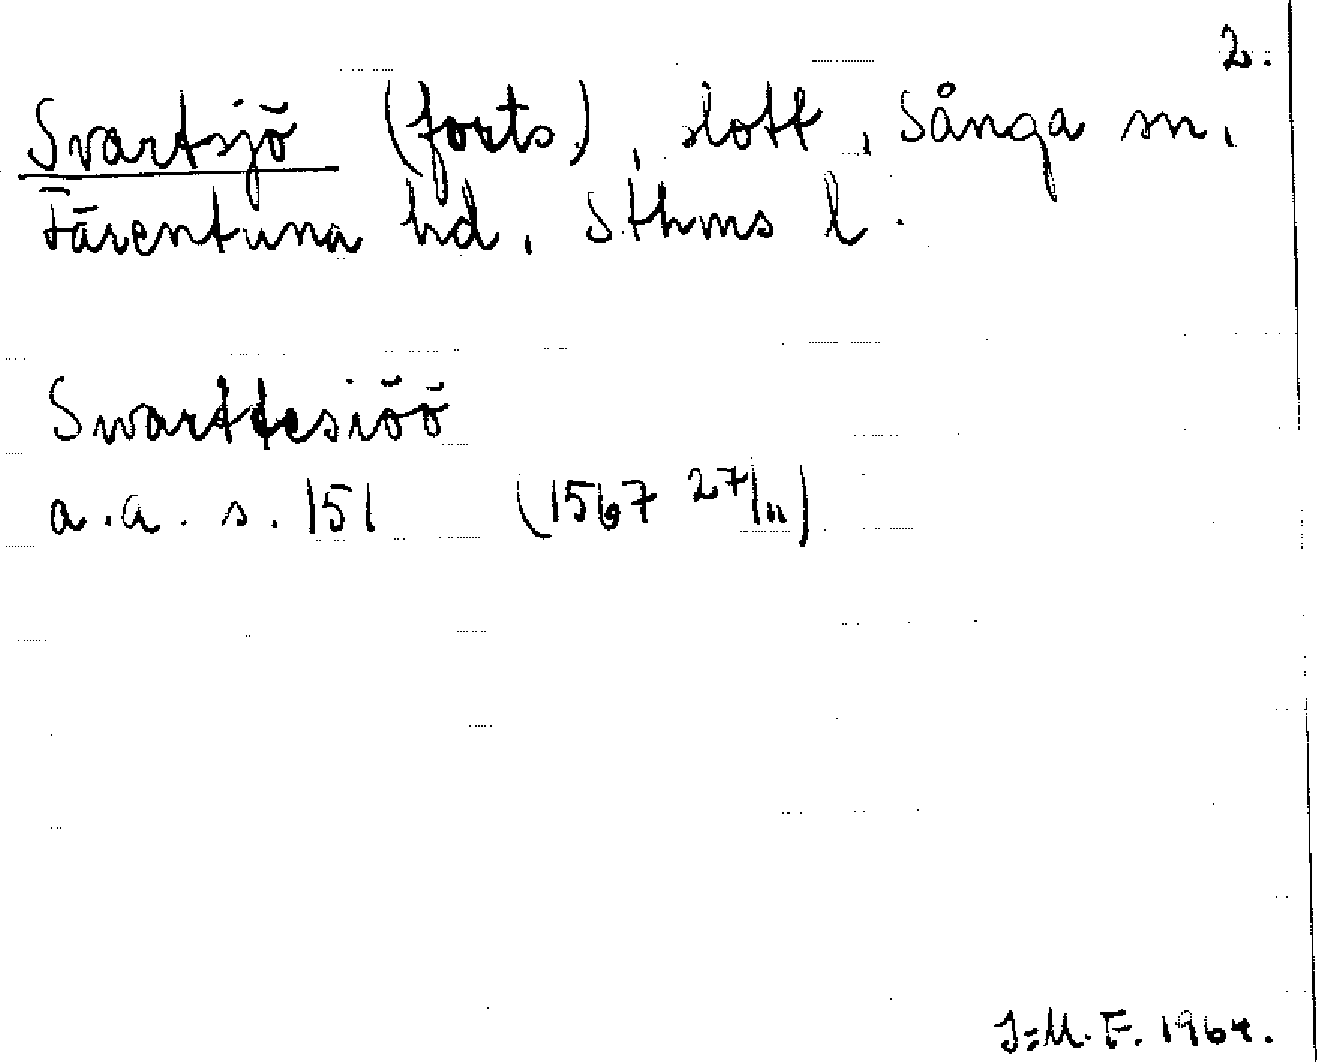 2.
Svartsjö (forts), slott, Sånga sn,
Färentuna hd, Sthms l.
Swarttesiöö
a.a. s. 151 (1567 27/11)
I=M.F. 1964.